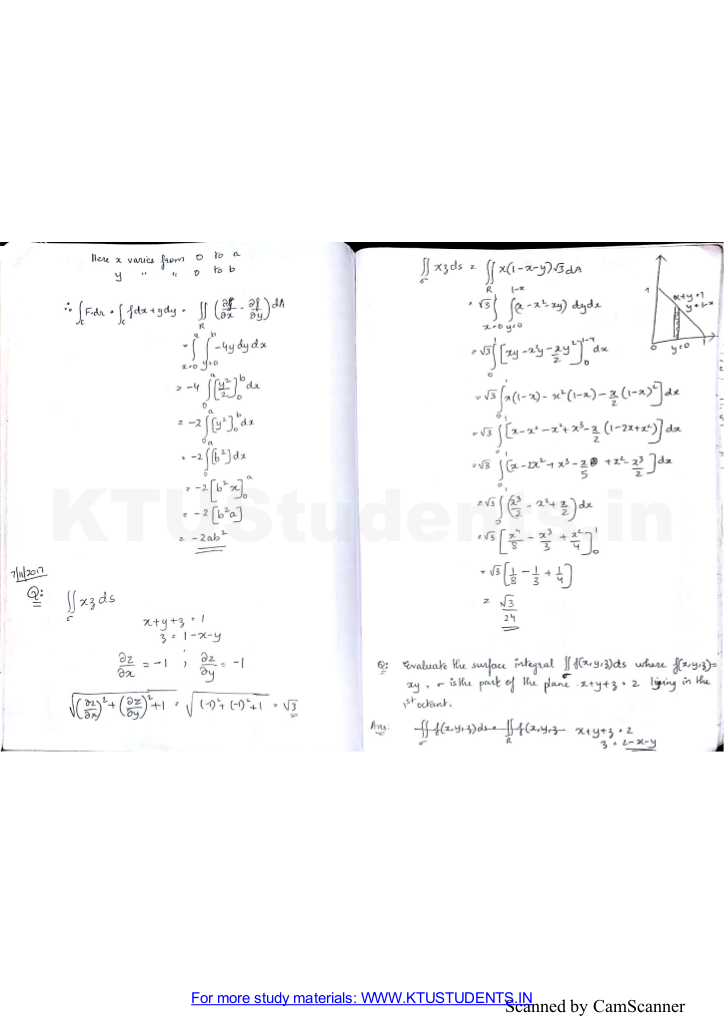 Here x varies from 0 to a
y " " 0 to b
∴ ∫_C F.dr = ∫_C fdx + gdy = ∬_R (∂g/∂x - ∂f/∂y) dA
= ∫_{x=0}^{a} ∫_{y=0}^{b} -4y dy dx
= -4 ∫_0^a [y²/2]_0^b dx
= -2 ∫_0^a [y²]_0^b dx
= -2 ∫_0^a [b²] dx
= -2 [b²x]_0^a
= -2 [b²a]
= -2ab²
7/11/2017
Q: ∬_σ xz ds
x+y+z = 1
z = 1-x-y
∂z/∂x = -1 ; ∂z/∂y = -1
√((∂z/∂x)² + (∂z/∂y)² + 1) = √((-1)² + (-1)² + 1) = √3
∬_σ xz ds = ∬_R x(1-x-y)√3 dA
= √3 ∫_{x=0}^{1} ∫_{y=0}^{1-x} (x - x² - xy) dy dx
= √3 ∫_0^1 [xy - x²y - x/2 y²]_0^{1-x} dx
= √3 ∫_0^1 x(1-x) - x²(1-x) - x/2 (1-x)²] dx
= √3 ∫_0^1 [x - x² - x² + x³ - x/2 (1-2x+x²)] dx
= √3 ∫_0^1 [x - 2x² + x³ - x/5 + x² - x³/2] dx
= √3 ∫_0^1 (x³/2 - x² + x/2) dx
= √3 [x⁴/8 - x³/3 + x²/4]_0^1
= √3 [1/8 - 1/3 + 1/4]
= √3/24
1
x+y=1
y=1-x
0 y=0 1
Q: Evaluate the surface integral ∬_σ f(x,y,z)ds where f(x,y,z)=
xy, σ is the part of the plane x+y+z = 2 lying in the
1st octant.
Ans: ∬_σ f(x,y,z)ds = ∬_R f(x,y,z x+y+z = 2
z = 2-x-y
KTUStudents.in
For more study materials: WWW.KTUSTUDENTS.IN
Scanned by CamScanner